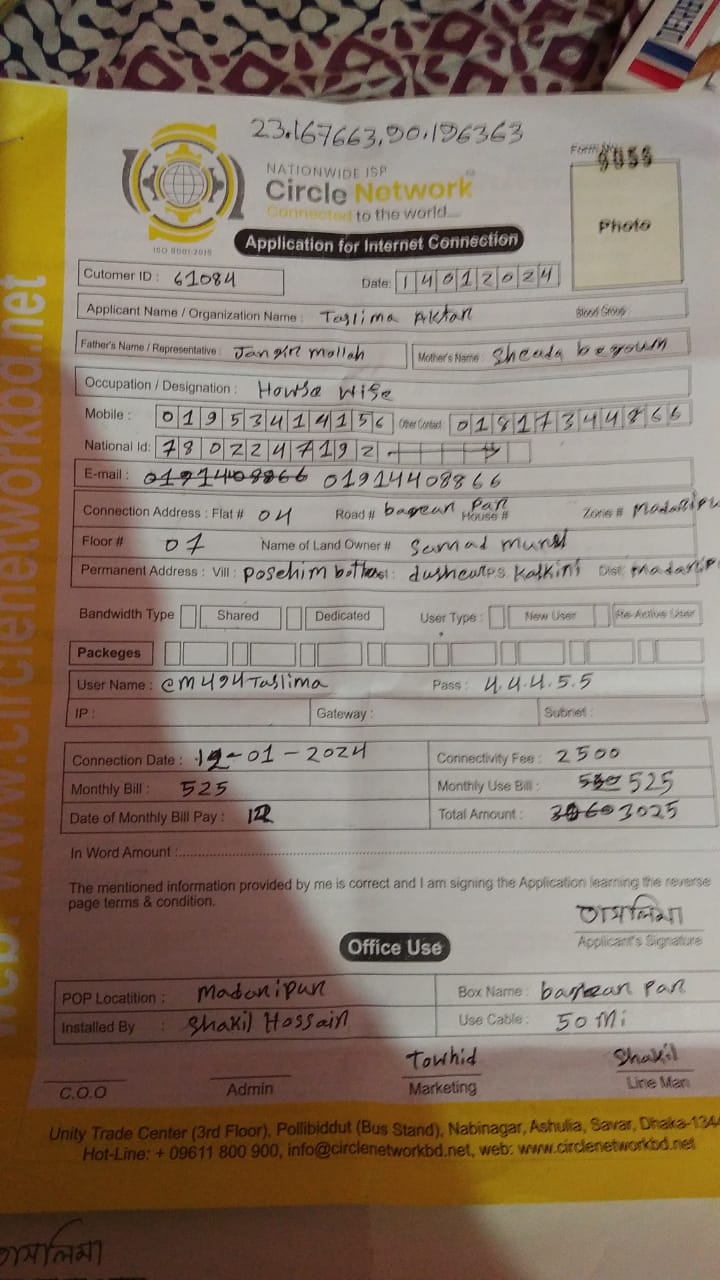 DERB
23.167663,90.196363
Form No.
9055
NATIONWIDE ISP
Circle Network
Connected to the world....
ISO 9001:2015
Photo
Application for Internet Connection
Cutomer ID : 61084 Date: 14012024
Applicant Name / Organization Name : Taslima Aktar Blood Group
Father's Name / Representative : Jangir mollah Mother's Name : Sheada begoum
Occupation / Designation : House wise
Mobile : 01953414156 Other Contact 01817344866
National Id: 7802247192
E-mail : 01914408866 01914408866
Connection Address : Flat # 04 Road # Par House # Zone # Madaripu
Floor # 07 Name of Land Owner # Samad munsi
Permanent Address : Vill : Poschim Kalkini Dist: madarip
Bandwidth Type Shared Dedicated User Type : New User Re-Active User
Packeges
User Name : cm494Taslima Pass : 4.4.4.5.5
IP : Gateway : Subnet :
Connection Date : 12-01-2024 Connectivity Fee : 2500
Monthly Bill : 525 Monthly Use Bill : 525
Date of Monthly Bill Pay : 12 Total Amount : 3025
In Word Amount :
The mentioned information provided by me is correct and I am signing the Application learning the reverse
page terms & condition.
তাসলিমা
Applicant's Signature
Office Use
POP Locatition : Madaripur Box Name : Par
Installed By : Shakil Hossain Use Cable : 50 Mi
Towhid Shakil
C.O.O Admin Marketing Line Man
Unity Trade Center (3rd Floor), Pollibiddut (Bus Stand), Nabinagar, Ashulia, Savar, Dhaka-134
Hot-Line: + 09611 800 900, info@circlenetworkbd.net, web: www.circlenetworkbd.net
web : www.circlenetworkbd.net
তাসলিমা